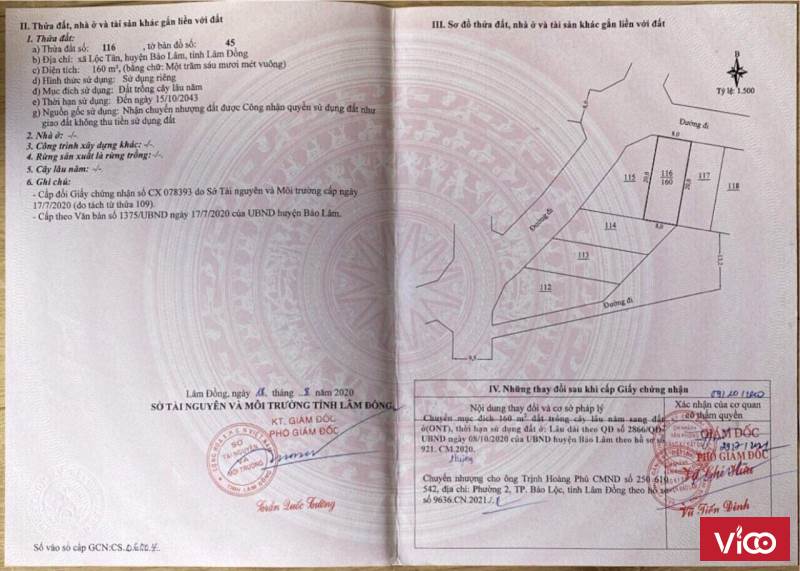 II. Thửa đất, nhà ở và tài sản khác gắn liền với đất
1. Thửa đất:
a) Thửa đất số: 116 , tờ bản đồ số: 45
b) Địa chỉ: xã Lộc Tân, huyện Bảo Lâm, tỉnh Lâm Đồng
c) Diện tích: 160 m², (bằng chữ: Một trăm sáu mươi mét vuông)
d) Hình thức sử dụng: Sử dụng riêng
đ) Mục đích sử dụng: Đất trồng cây lâu năm
e) Thời hạn sử dụng: Đến ngày 15/10/2043
g) Nguồn gốc sử dụng: Nhận chuyển nhượng đất được Công nhận quyền sử dụng đất như
giao đất không thu tiền sử dụng đất
2. Nhà ở: -/-
3. Công trình xây dựng khác: -/-
4. Rừng sản xuất là rừng trồng: -/-
5. Cây lâu năm: -/-
6. Ghi chú:
- Cấp đổi Giấy chứng nhận số CX 078393 do Sở Tài nguyên và Môi trường cấp ngày
17/7/2020 (do tách từ thửa 109).
- Cấp theo Văn bản số 1375/UBND ngày 17/7/2020 của UBND huyện Bảo Lâm.
Lâm Đồng, ngày 18 tháng 8 năm 2020
SỞ TÀI NGUYÊN VÀ MÔI TRƯỜNG TỈNH LÂM ĐỒNG
KT. GIÁM ĐỐC
PHÓ GIÁM ĐỐC
SỞ
TÀI NGUYÊN
VÀ
MÔI TRƯỜNG
TỈNH LÂM ĐỒNG
Trần Quốc Cường
Số vào sổ cấp GCN:CS
III. Sơ đồ thửa đất, nhà ở và tài sản khác gắn liền với đất
B
Tỷ lệ: 1:500
Đường đi
8,0
115
20,0
116
160
20,0
117
118
Đường đi
114
8,0
113
112
Đường đi
IV. Những thay đổi sau khi cấp Giấy chứng nhận
Nội dung thay đổi và cơ sở pháp lý
Xác nhận của cơ quan
có thẩm quyền
09/10/2020
Chuyển mục đích 160 m² đất trồng cây lâu năm sang đất
ở(ONT), thời hạn sử dụng đất ở: Lâu dài theo QĐ số 2866/QĐ-
UBND ngày 08/10/2020 của UBND huyện Bảo Lâm theo hồ sơ số
921.CM.2020.
GIÁM ĐỐC
PHÓ GIÁM ĐỐC
Chuyển nhượng cho ông Trịnh Hoàng Phú CMND số 250 610
542, địa chỉ: Phường 2, TP. Bảo Lộc, tỉnh Lâm Đồng theo hồ sơ
9636.CN.2021.
Vũ Tiến Định
ViCO